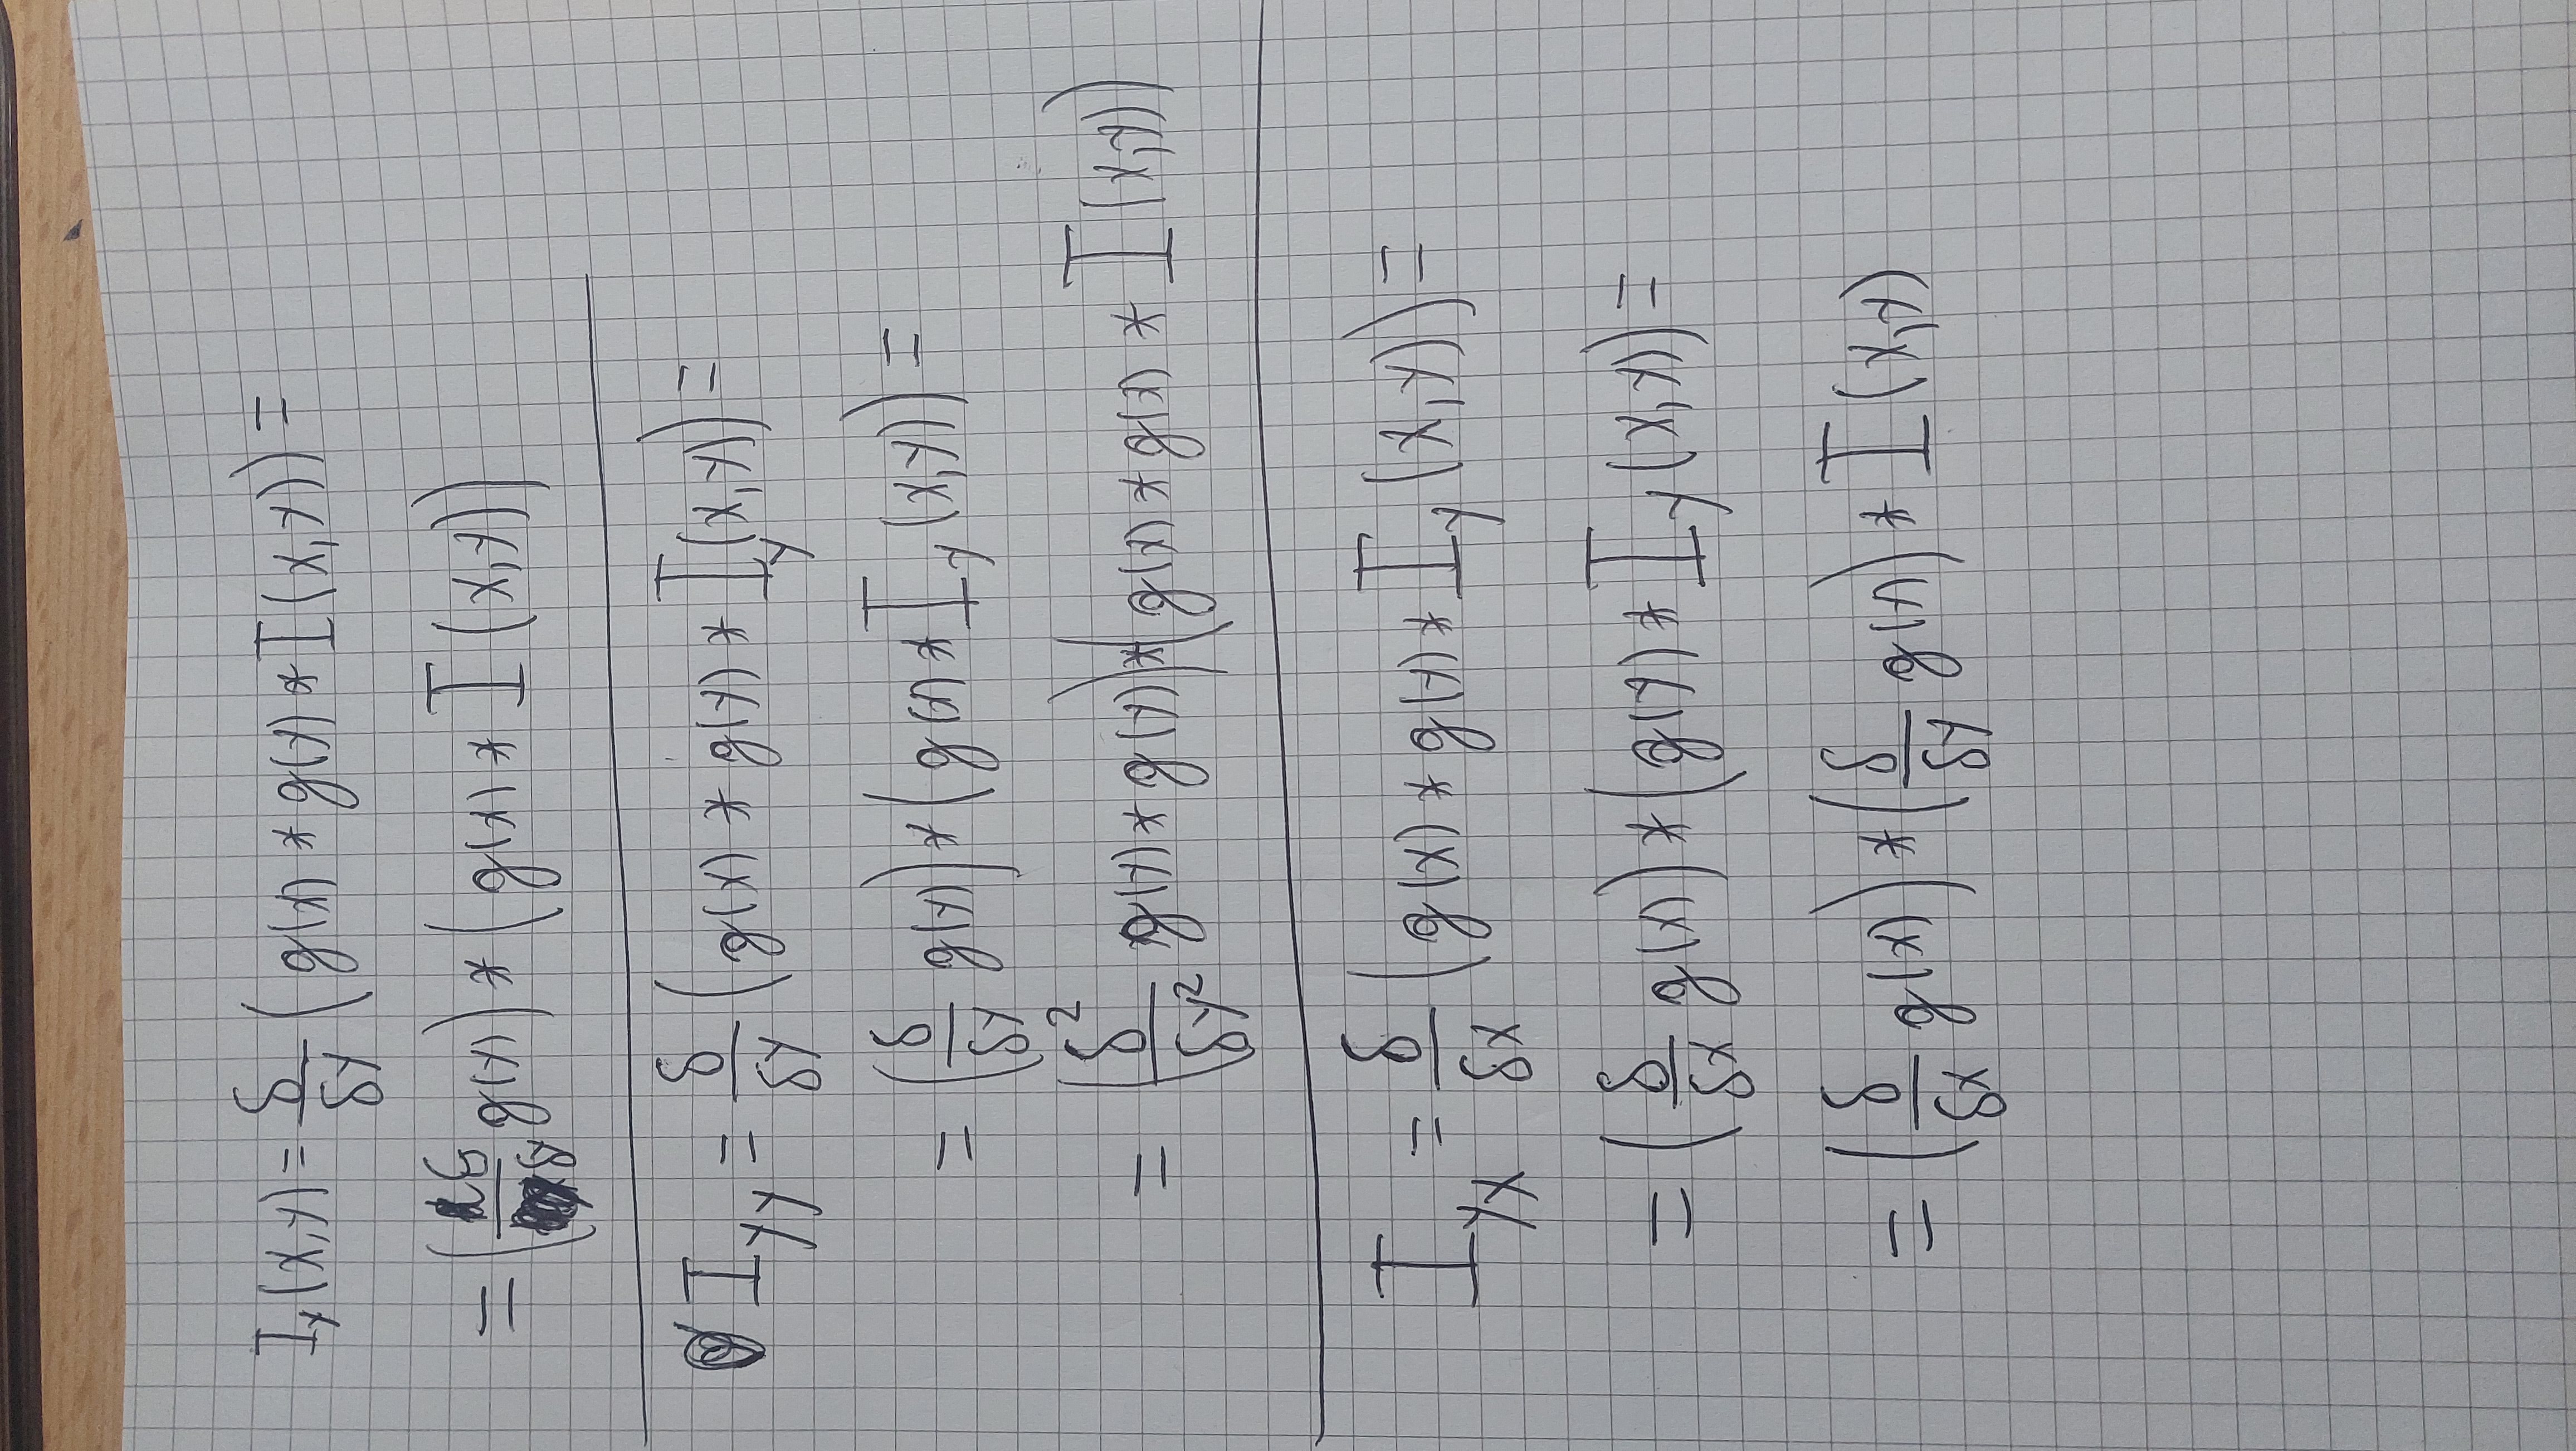 I_y(x,y) = δ/δy (g(x) * g(y) * I(x,y)) =
= (δ/δy g(y)) * (g(x) * I(x,y))
I_yy = δ/δy (g(x) * g(y) * I_y(x,y)) =
= (δ/δy g(y)) * (g(x) * I_y(x,y)) =
= (δ²/δy² g(y) * g(y)) * (g(x) * g(x) * I(x,y))
I_yx = δ/δx (g(x) * g(y) * I_y(x,y)) =
= (δ/δx g(x)) * (g(y) * I_y(x,y)) =
= (δ/δx g(x)) * (δ/δy g(y)) * I(x,y)